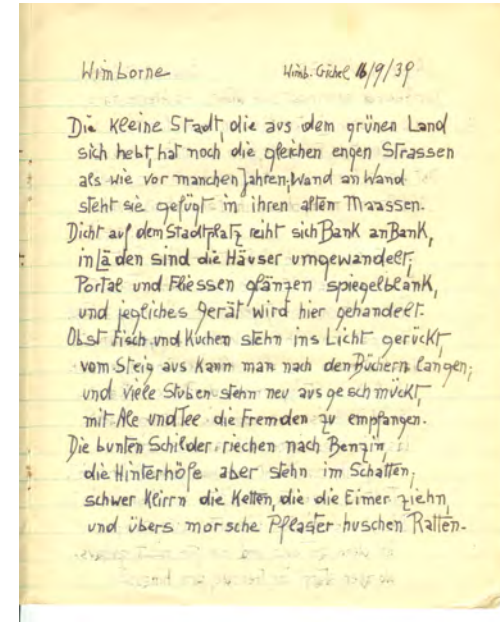 Wimborne Wimb. Gichel 16/9/39
Die kleine Stadt, die aus dem grünen Land
sich hebt, hat noch die gleichen engen Strassen
als wie vor manchen Jahren; Wand an Wand
steht sie gefügt in ihren alten Maassen.
Dicht auf dem Stadtplatz reiht sich Bank an Bank,
in Läden sind die Häuser umgewandelt,
Portal und Fliessen glänzen spiegelblank,
und jegliches Gerät wird hier gehandelt.
Obst Fisch und Kuchen stehn ins Licht gerückt,
vom Steig aus kann man nach den Büchern langen;
und viele Stuben stehn neu ausgeschmückt,
mit Ale und Tee die Fremden zu empfangen.
Die bunten Schilder riechen nach Benzin,
die Hinterhöfe aber stehn im Schatten,
schwer klirrn die Ketten, die die Eimer ziehn,
und übers morsche Pflaster huschen Ratten.